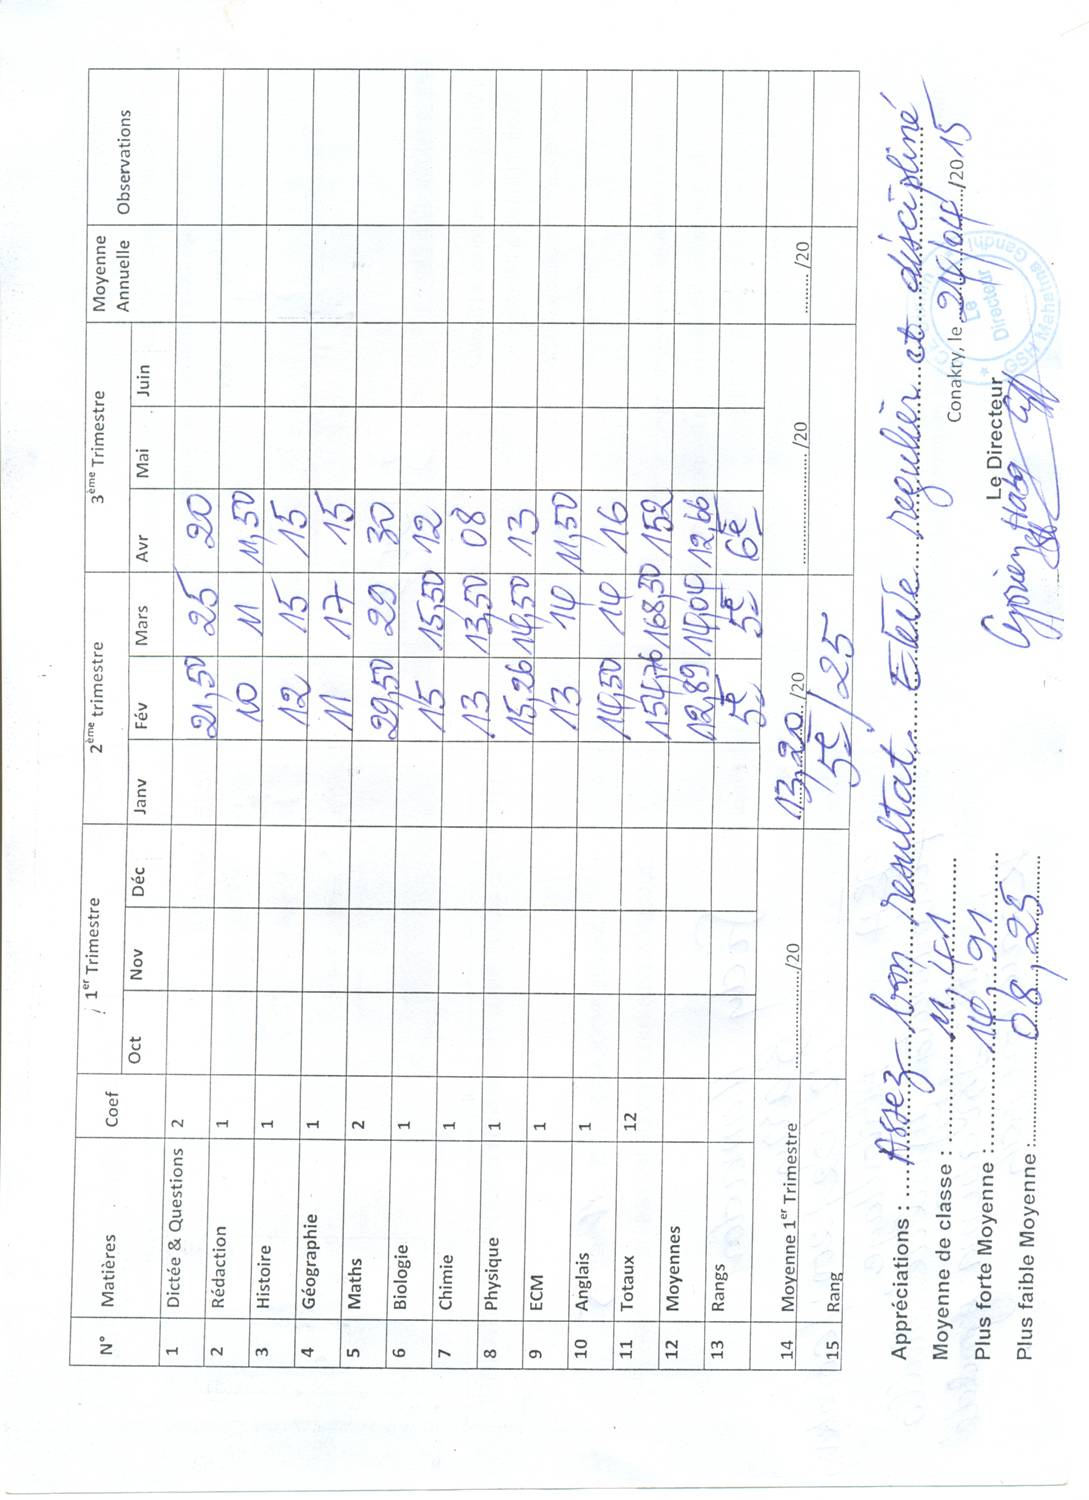 N° Matières Coef 1er Trimestre 2ème trimestre 3ème Trimestre Moyenne Annuelle Observations
Oct Nov Déc Janv Fév Mars Avr Mai Juin
1 Dictée & Questions 2 21,50 25 20
2 Rédaction 1 10 11 11,50
3 Histoire 1 12 15 15
4 Géographie 1 11 17 15
5 Maths 2 29,50 29 30
6 Biologie 1 15 15,50 12
7 Chimie 1 13 13,50 08
8 Physique 1 15,26 14,50 13
9 ECM 1 13 14 11,50
10 Anglais 1 14,50 14 16
11 Totaux 12 154,76 168,50 152
12 Moyennes 12,89 14,04 12,66
13 Rangs 5e 5e 6e
14 Moyenne 1er Trimestre ................/20 13,20/20 ................/20 ........../20
15 Rang 5e/25
Appréciations : Assez bon resultat. Elève regulier et discipliné
Moyenne de classe : 11,41
Conakry, le /04/2015
Plus forte Moyenne : 14,91
Le Directeur
Plus faible Moyenne : 08,25
Le Directeur
GSH Mahatma Gandhi